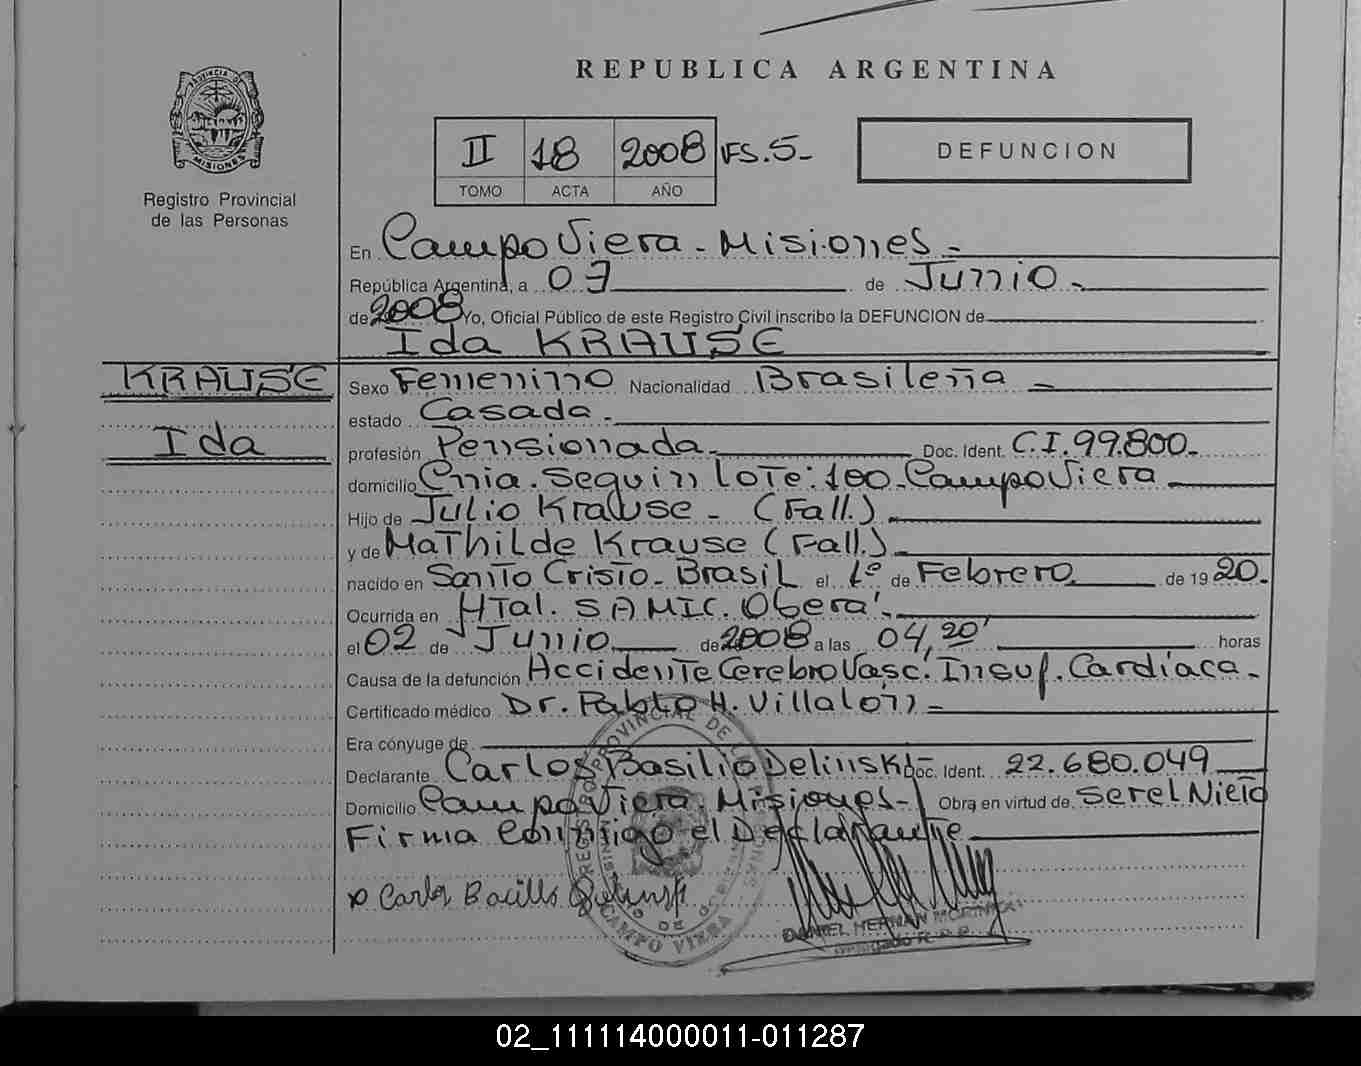 REPUBLICA ARGENTINA
PROVINCIA DE MISIONES
Registro Provincial
de las Personas
II 18 2008 FS.5-
TOMO ACTA AÑO
DEFUNCION
En Campo Viera - Misiones -
República Argentina, a 03 de Junio -
de 2008 Yo, Oficial Público de este Registro Civil inscribo la DEFUNCION de
Ida KRAUSE
KRAUSE
Ida
Sexo Femenino Nacionalidad Brasileña -
estado Casada -
profesión Pensionada - Doc. Ident. C.I. 99.800 -
domicilio Cnia. Seguin Lote: 100 - Campo Viera
Hijo de Julio Krause - (Fall.)
y de Mathilde Krause (Fall.) -
nacido en Santo Cristo - Brasil el 1º de Febrero de 1920.
Ocurrida en Htal. SAMIC. Oberá -
el 02 de Junio de 2008 a las 04,20' horas
Causa de la defunción Accidente Cerebro Vasc. Insuf. Cardíaca -
Certificado médico Dr. Pablo H. Villalón -
Era cónyuge de
Declarante Carlos Basilio Delinski Doc. Ident. 22.680.049
Domicilio Campo Viera. Misiones - Obra en virtud de Ser el Nieto
Firma Conmigo el Declarante
Carlos Bacilio Delinski
REGISTRO PROVINCIAL DE LAS PERSONAS
CAMPO VIERA
DANIEL HERNAN
Delegado R.P.P.
02_111114000011-011287